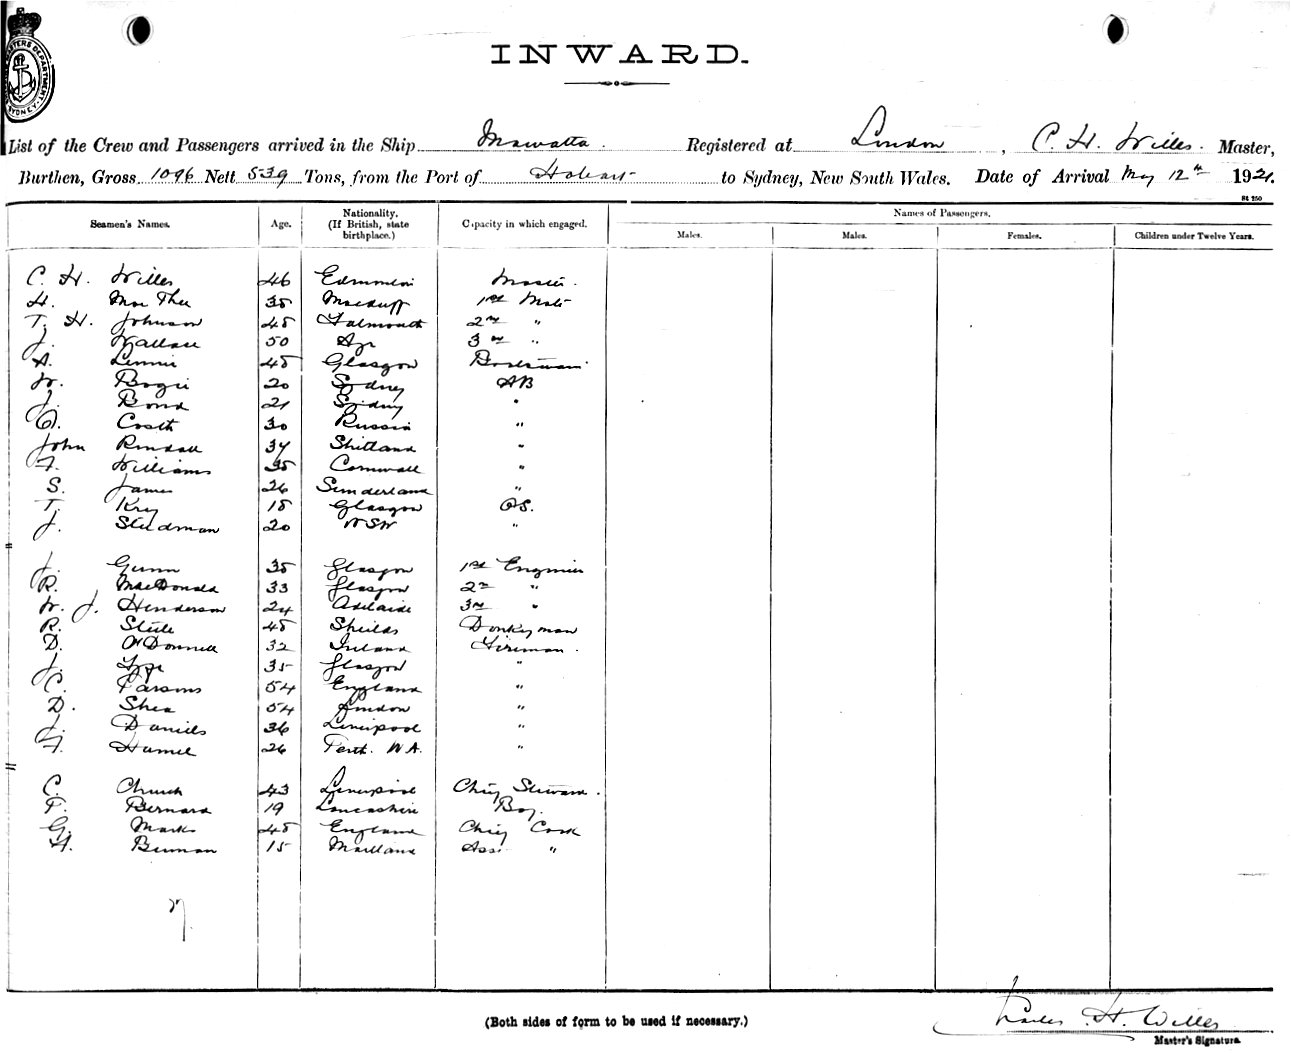 INWARD.
List of the Crew and Passengers arrived in the Ship Mawatta. Registered at London, C. H. Willes. Master,
Burthen, Gross 1096 Nett 539 Tons, from the Port of Hobart to Sydney, New South Wales. Date of Arrival May 12th 1921.
St 250
Seamen's Names. Age. Nationality. (If British, state birthplace.) Capacity in which engaged. Names of Passengers.
Males. Males. Females. Children under Twelve Years.
C. H. Willes 46 Edmonton Master.
H. 35 Macduff 1st Mate
T. H. Johnson 45 Falmouth 2nd "
J. Wallace 50 Ayr 3rd "
A. Lennie 45 Glasgow Boatswain
W. Bogie 20 Sydney AB
J. Bond 21 Sydney "
30 Russia "
John Rendall 37 Shetland "
F. Williams 35 Cornwall "
S. James 26 Sunderland "
T. 18 Glasgow OS.
J. Steedman 20 NSW "
J. Gunn 35 Glasgow 1st Engineer
R. MacDonald 33 Glasgow 2nd "
W. J. Henderson 24 Adelaide 3rd "
R. Steele 45 Sheilds Donkeyman
D. O'Donnell 32 Ireland Fireman.
J. 35 Glasgow "
C. Parsons 54 England "
D. Shea 54 London "
J. Daniels 36 Liverpool "
F. Hamel 26 Perth. W.A. "
C. Church 43 Liverpool Chief Steward.
F. Bernard 19 Lancashire Boy.
G. Marks 45 England Chief Cook
15 Maitland Ass. "
27
(Both sides of form to be used if necessary.)
Charles H. Willes
Master's Signature.